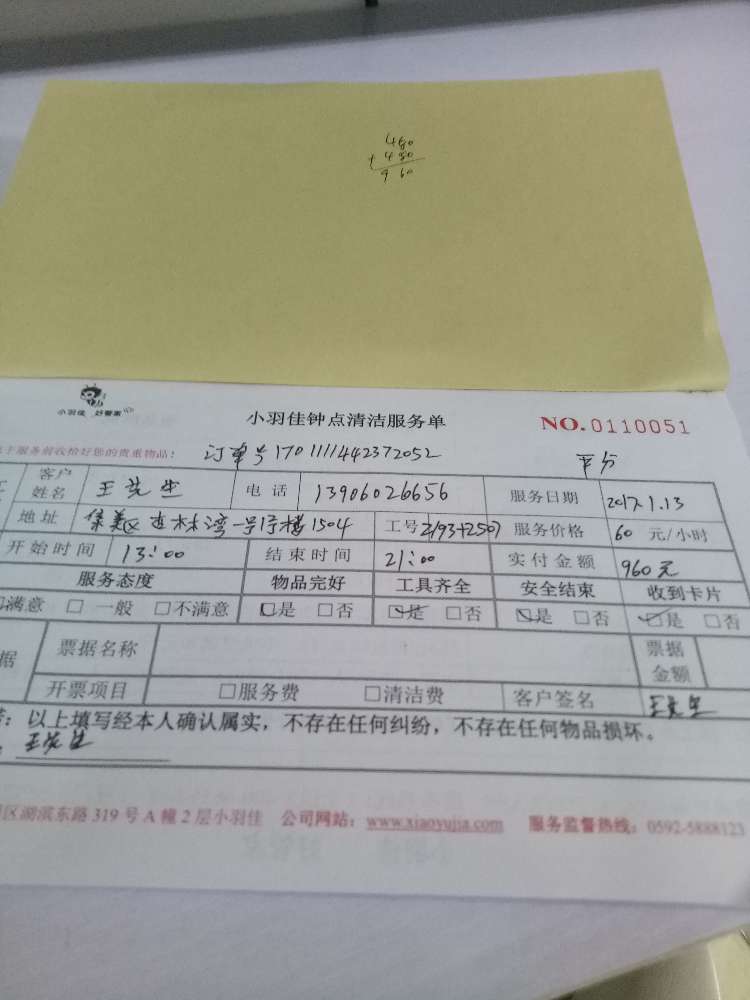 480
+ 480
960
小羽佳 好管家
小羽佳钟点清洁服务单
NO. 0110051
服务前收拾好您的贵重物品：
订单号17011111442372052
平分
客户姓名 王先生 电话 13906026656 服务日期 2017.1.13
地址 集美区 古木林湾一号楼1504 工号 2193+2507 服务价格 60 元/小时
开始时间 13:00 结束时间 21:00 实付金额 960元
服务态度 物品完好 工具齐全 安全结束 收到卡片
满意 □ 一般 □不满意 ☑是 □否 ☑是 □否 ☑是 □否 ☑是 □否
据 票据名称 票据金额
开票项目 □服务费 □清洁费 客户签名 王先生
：以上填写经本人确认属实，不存在任何纠纷，不存在任何物品损坏。
王先生
区湖滨东路 319 号 A 幢 2 层小羽佳 公司网站：www.xiaoyujia.com 服务监督热线：0592-5888123